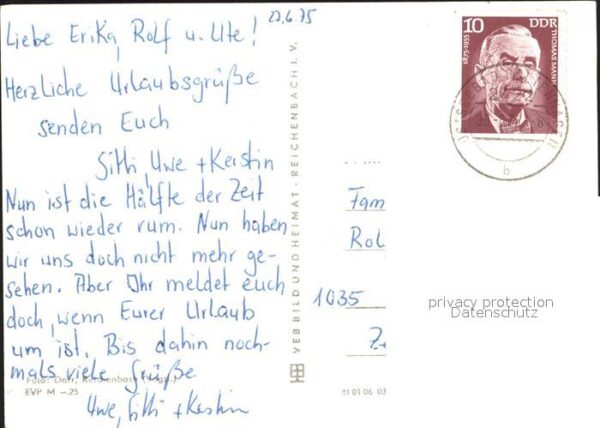 27.6.75
Liebe Erika, Rolf u. Ute!
Herzliche Urlaubsgrüße
senden Euch
Sitti, Uwe + Kerstin
Nun ist die Hälfte der Zeit
schon wieder rum. Nun haben
wir uns doch nicht mehr ge-
sehen. Aber Ihr meldet euch
doch, wenn Eurer Urlaub
um ist. Bis dahin noch-
mals viele Grüße
Uwe, Sitti + Kerstin
EVP M -.25
VEB BILD UND HEIMAT · REICHENBACH I. V.
10
DDR
1875-1955
THOMAS MANN
b
Fam
Rol
1035
privacy protection
Datenschutz
01 01 06 03